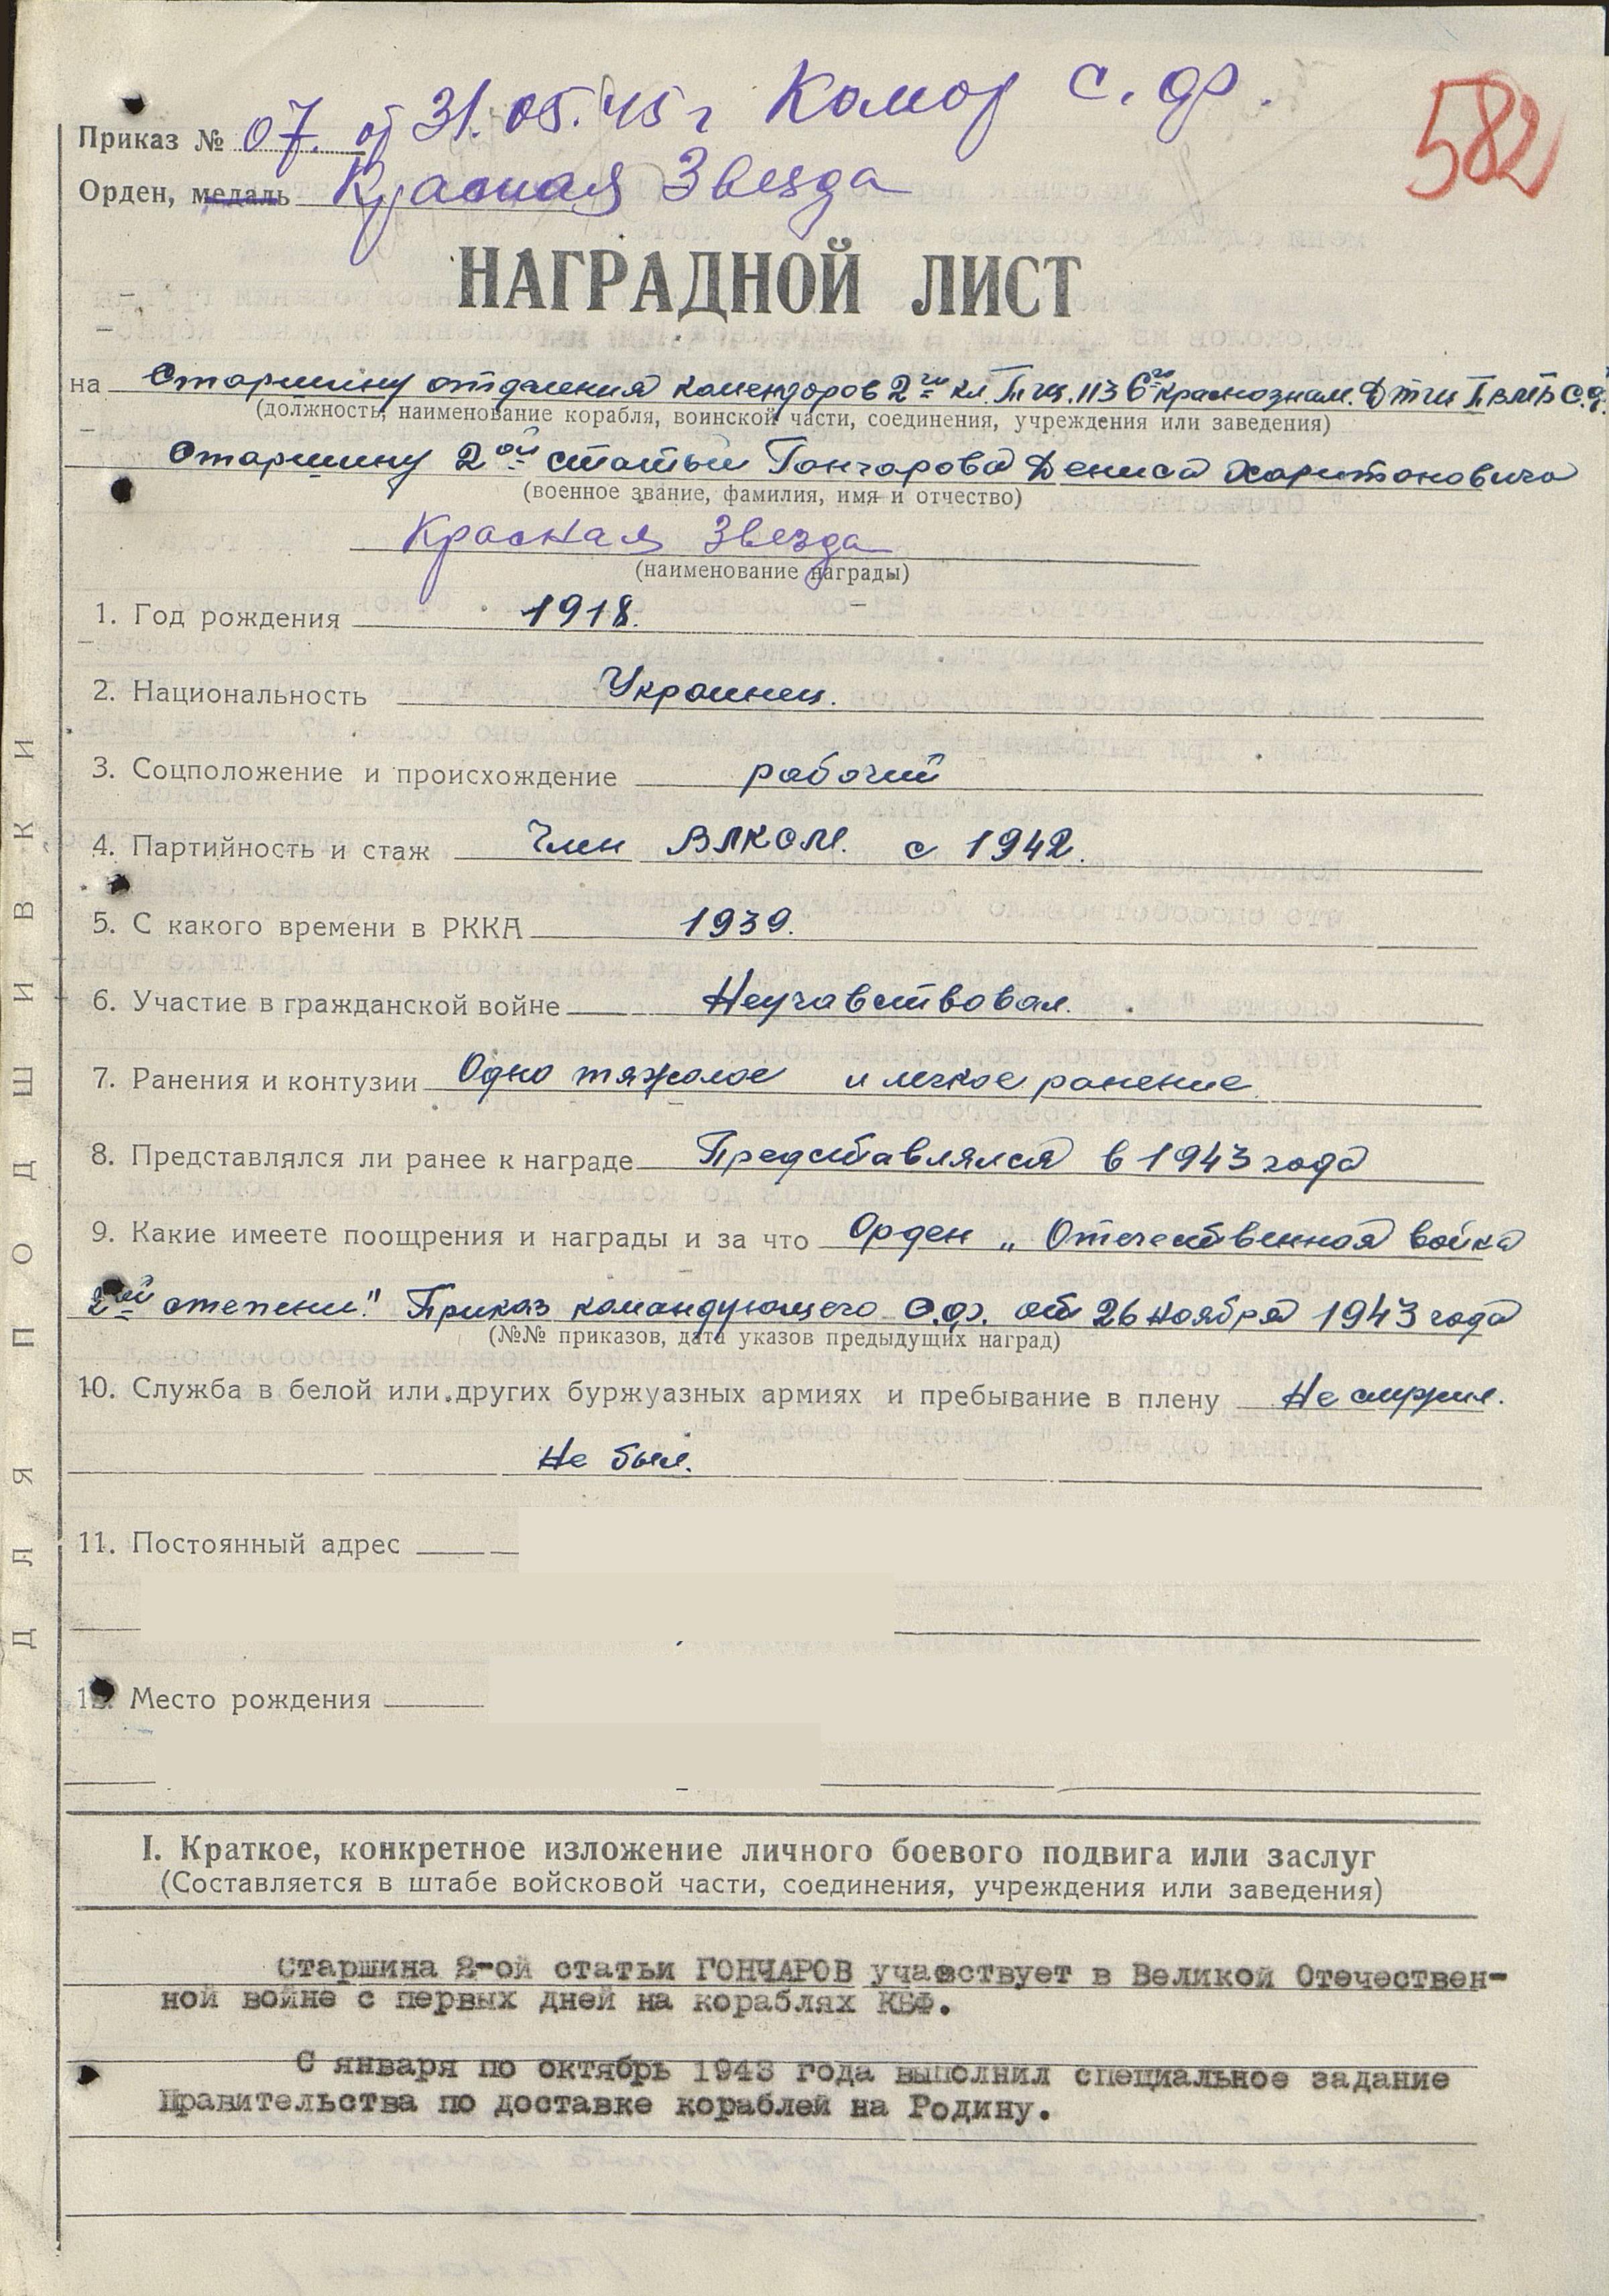 Приказ № 07. от 31.05.45 г Комор С. ф.
582
Орден, медаль Красная Звезда
НАГРАДНОЙ ЛИСТ
на Старшину отделения комендоров 2го кл. Тщ. 113 6го Краснознам. Дтщ ПВМБ С.ф.
(должность, наименование корабля, воинской части, соединения, учреждения или заведения)
Старшину 2ой статьи Гончарова Дениса Харитоновича
(военное звание, фамилия, имя и отчество)
Красная Звезда
(наименование награды)
1. Год рождения 1918.
2. Национальность Украинец.
3. Соцположение и происхождение рабочий
4. Партийность и стаж Член ВЛКСМ. с 1942.
5. С какого времени в РККА 1939.
6. Участие в гражданской войне Неучавствовал.
7. Ранения и контузии Одно тяжолое и легкое ранение.
8. Представлялся ли ранее к награде Представлялся в 1943 года
9. Какие имеете поощрения и награды и за что Орден „Отечественная война
2ой степени." Приказ командующего С.ф. от 26 ноября 1943 года
(№№ приказов, дата указов предыдущих наград)
10. Служба в белой или других буржуазных армиях и пребывание в плену Не служил.
Не был.
11. Постоянный адрес
12. Место рождения
I. Краткое, конкретное изложение личного боевого подвига или заслуг
(Составляется в штабе войсковой части, соединения, учреждения или заведения)
Старшина 2-ой статьи ГОНЧАРОВ участвует в Великой Отечествен-
ной войне с первых дней на кораблях КБФ.
С января по октябрь 1943 года выполнил специальное задание
Правительства по доставке кораблей на Родину.
ДЛЯ ПОДШИВКИ